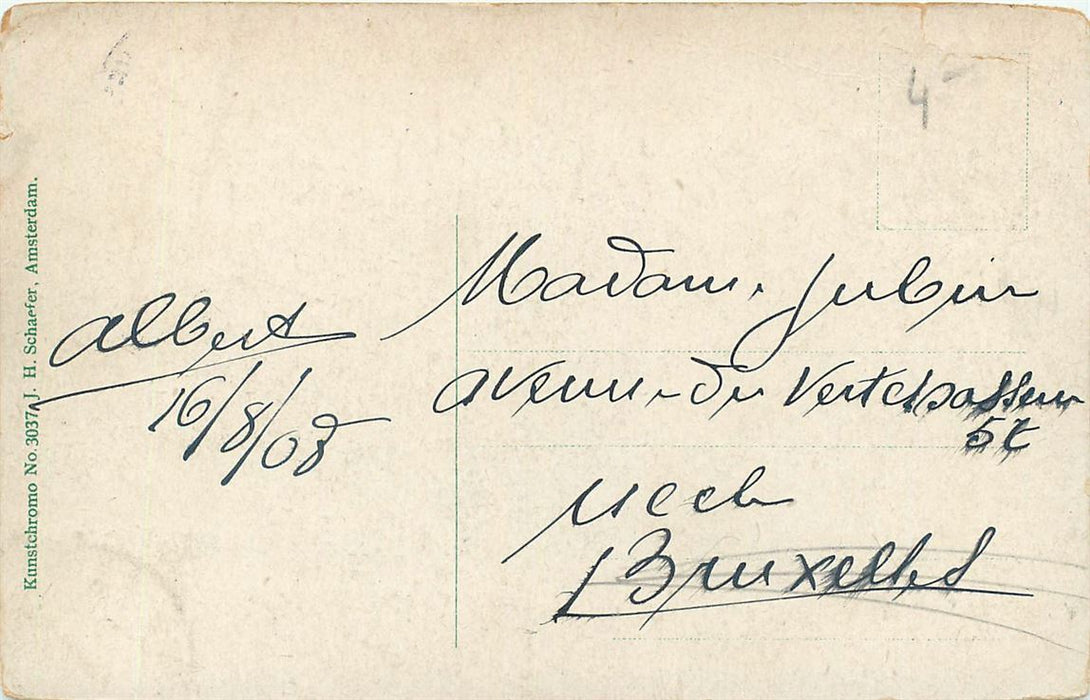 Kunstchromo No. 3037, J. H. Schaefer, Amsterdam.
4-
Albert
16/8/08
Madame Jubin
Avenue du Vertchasseur
52
Uccle
Bruxelles